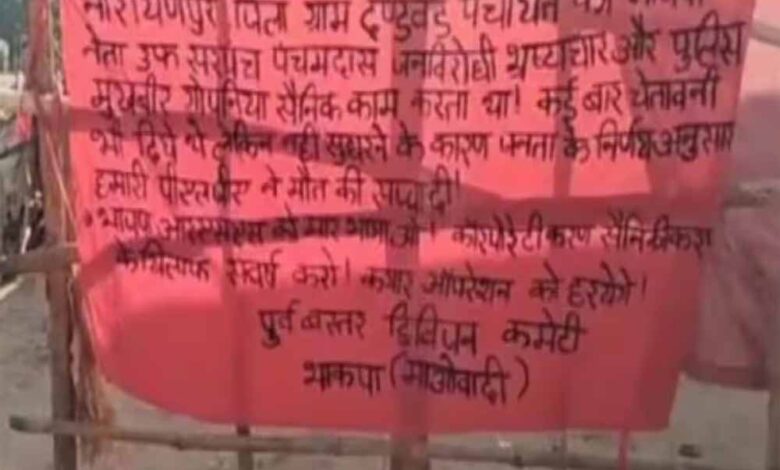 नारायणपुर जिला ग्राम दण्डवन पंचायत का भाजपा
नेता उर्फ सरपंच पंचमदास जनविरोधी भ्रष्टाचार और पुलिस
मुखबीर गोपनिया सैनिक काम करता था। कई बार चेतावनी
भी दिये थे लेकिन नही सुधरने के कारण जनता के निर्णय अनुसार
हमारी पीएलजीए ने मौत की सजा दी।
• भाजपा आरएसएस को मार भगाओ। कॉरपोरेटीकरण सैनिकीकरण
के खिलाफ संघर्ष करो। कगार ऑपरेशन को हरायेंगे।
पुर्व बस्तर डिविजन कमेटी
भाकपा (माओवादी)